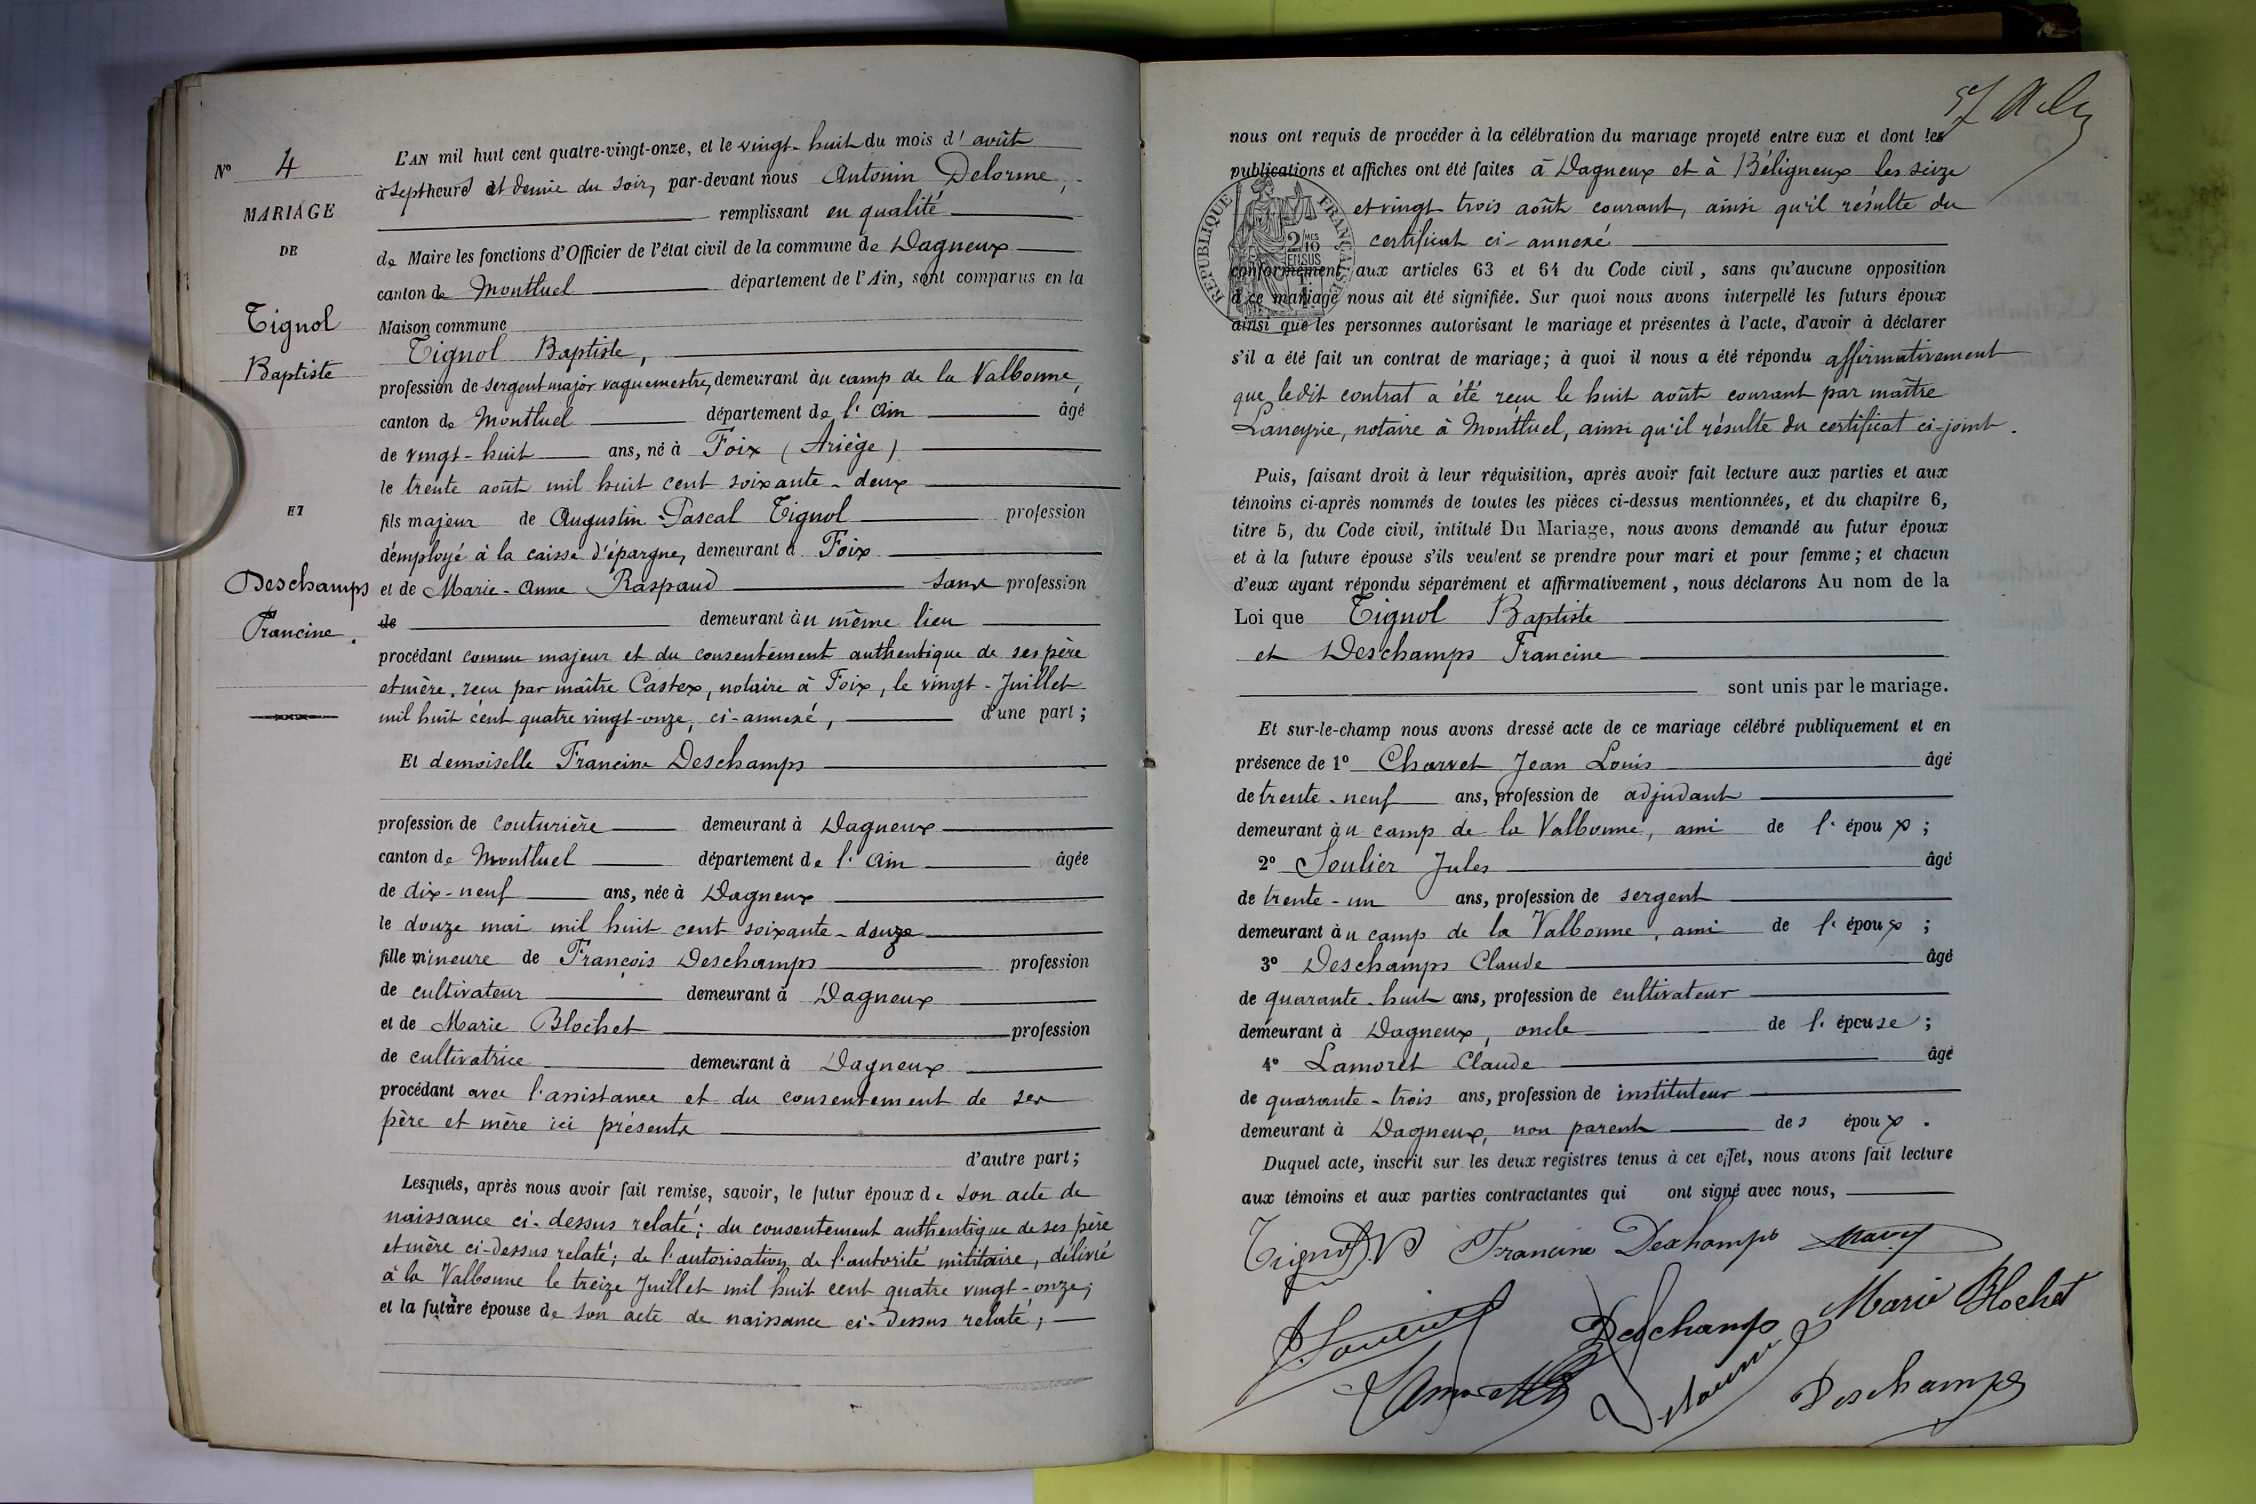 N° 4
MARIAGE
DE
Tignol
Baptiste
ET
Deschamps
Francine.
L'AN mil huit cent quatre-vingt-onze, et le vingt-huit du mois d'août
à sept heures et demie du soir, par-devant nous Antonin Delorme,
remplissant en qualité
de Maire les fonctions d'Officier de l'état civil de la commune de Dagneux
canton de Montluel département de l'Ain, sont comparus en la
Maison commune
Tignol Baptiste,
profession de sergent major vaguemestre, demeurant au camp de la Valbonne,
canton de Montluel département de l'Ain âgé
de vingt-huit ans, né à Foix (Ariège)
le trente août mil huit cent soixante-deux
fils majeur de Augustin-Pascal Tignol profession
d'employé à la caisse d'épargne, demeurant à Foix
et de Marie-Anne Raspaud sans profession
de demeurant au même lieu
procédant comme majeur et du consentement authentique de ses père
et mère, reçu par maître Castex, notaire à Foix, le vingt-Juillet
mil huit cent quatre vingt-onze, ci-annexé, d'une part;
Et demoiselle Francine Deschamps
profession de couturière demeurant à Dagneux
canton de Montluel département de l'Ain âgée
de dix-neuf ans, née à Dagneux
le douze mai mil huit cent soixante-douze
fille mineure de François Deschamps profession
de cultivateur demeurant à Dagneux
et de Marie Blochet profession
de cultivatrice demeurant à Dagneux
procédant avec l'assistance et du consentement de ses
père et mère ici présents
d'autre part;
Lesquels, après nous avoir fait remise, savoir, le futur époux de son acte de
naissance ci-dessus relaté; du consentement authentique de ses père
et mère ci-dessus relaté; de l'autorisation de l'autorité militaire, délivré
à la Valbonne le treize Juillet mil huit cent quatre vingt-onze;
et la future épouse de son acte de naissance ci-dessus relaté;
nous ont requis de procéder à la célébration du mariage projeté entre eux et dont les
publications et affiches ont été faites à Dagneux et à Béligneux les seize
et vingt trois août courant, ainsi qu'il résulte du
certificat ci-annexé
RÉPUBLIQUE FRANÇAISE
2/10 MES
EN SUS
conformément aux articles 63 et 64 du Code civil, sans qu'aucune opposition
à ce mariage nous ait été signifiée. Sur quoi nous avons interpellé les futurs époux
ainsi que les personnes autorisant le mariage et présentes à l'acte, d'avoir à déclarer
s'il a été fait un contrat de mariage; à quoi il nous a été répondu affirmativement
que ledit contrat a été reçu le huit août courant par maître
Laneyrie, notaire à Montluel, ainsi qu'il résulte du certificat ci-joint.
Puis, faisant droit à leur réquisition, après avoir fait lecture aux parties et aux
témoins ci-après nommés de toutes les pièces ci-dessus mentionnées, et du chapitre 6,
titre 5, du Code civil, intitulé Du Mariage, nous avons demandé au futur époux
et à la future épouse s'ils veulent se prendre pour mari et pour femme; et chacun
d'eux ayant répondu séparément et affirmativement, nous déclarons Au nom de la
Loi que Tignol Baptiste
et Deschamps Francine
sont unis par le mariage.
Et sur-le-champ nous avons dressé acte de ce mariage célébré publiquement et en
présence de 1° Charvet Jean Louis âgé
de trente-neuf ans, profession de adjudant
demeurant au camp de la Valbonne, ami de l'époux;
2° Soulier Jules âgé
de trente-un ans, profession de sergent
demeurant au camp de la Valbonne, ami de l'époux;
3° Deschamps Claude âgé
de quarante-huit ans, profession de cultivateur
demeurant à Dagneux, oncle de l'épouse;
4° Lamoret Claude âgé
de quarante-trois ans, profession de instituteur
demeurant à Dagneux, non parent des époux.
Duquel acte, inscrit sur les deux registres tenus à cet effet, nous avons fait lecture
aux témoins et aux parties contractantes qui ont signé avec nous,
Tignol B Francine Deschamps
J. Soulier Deschamps Marie Blochet
Delorme Deschamps